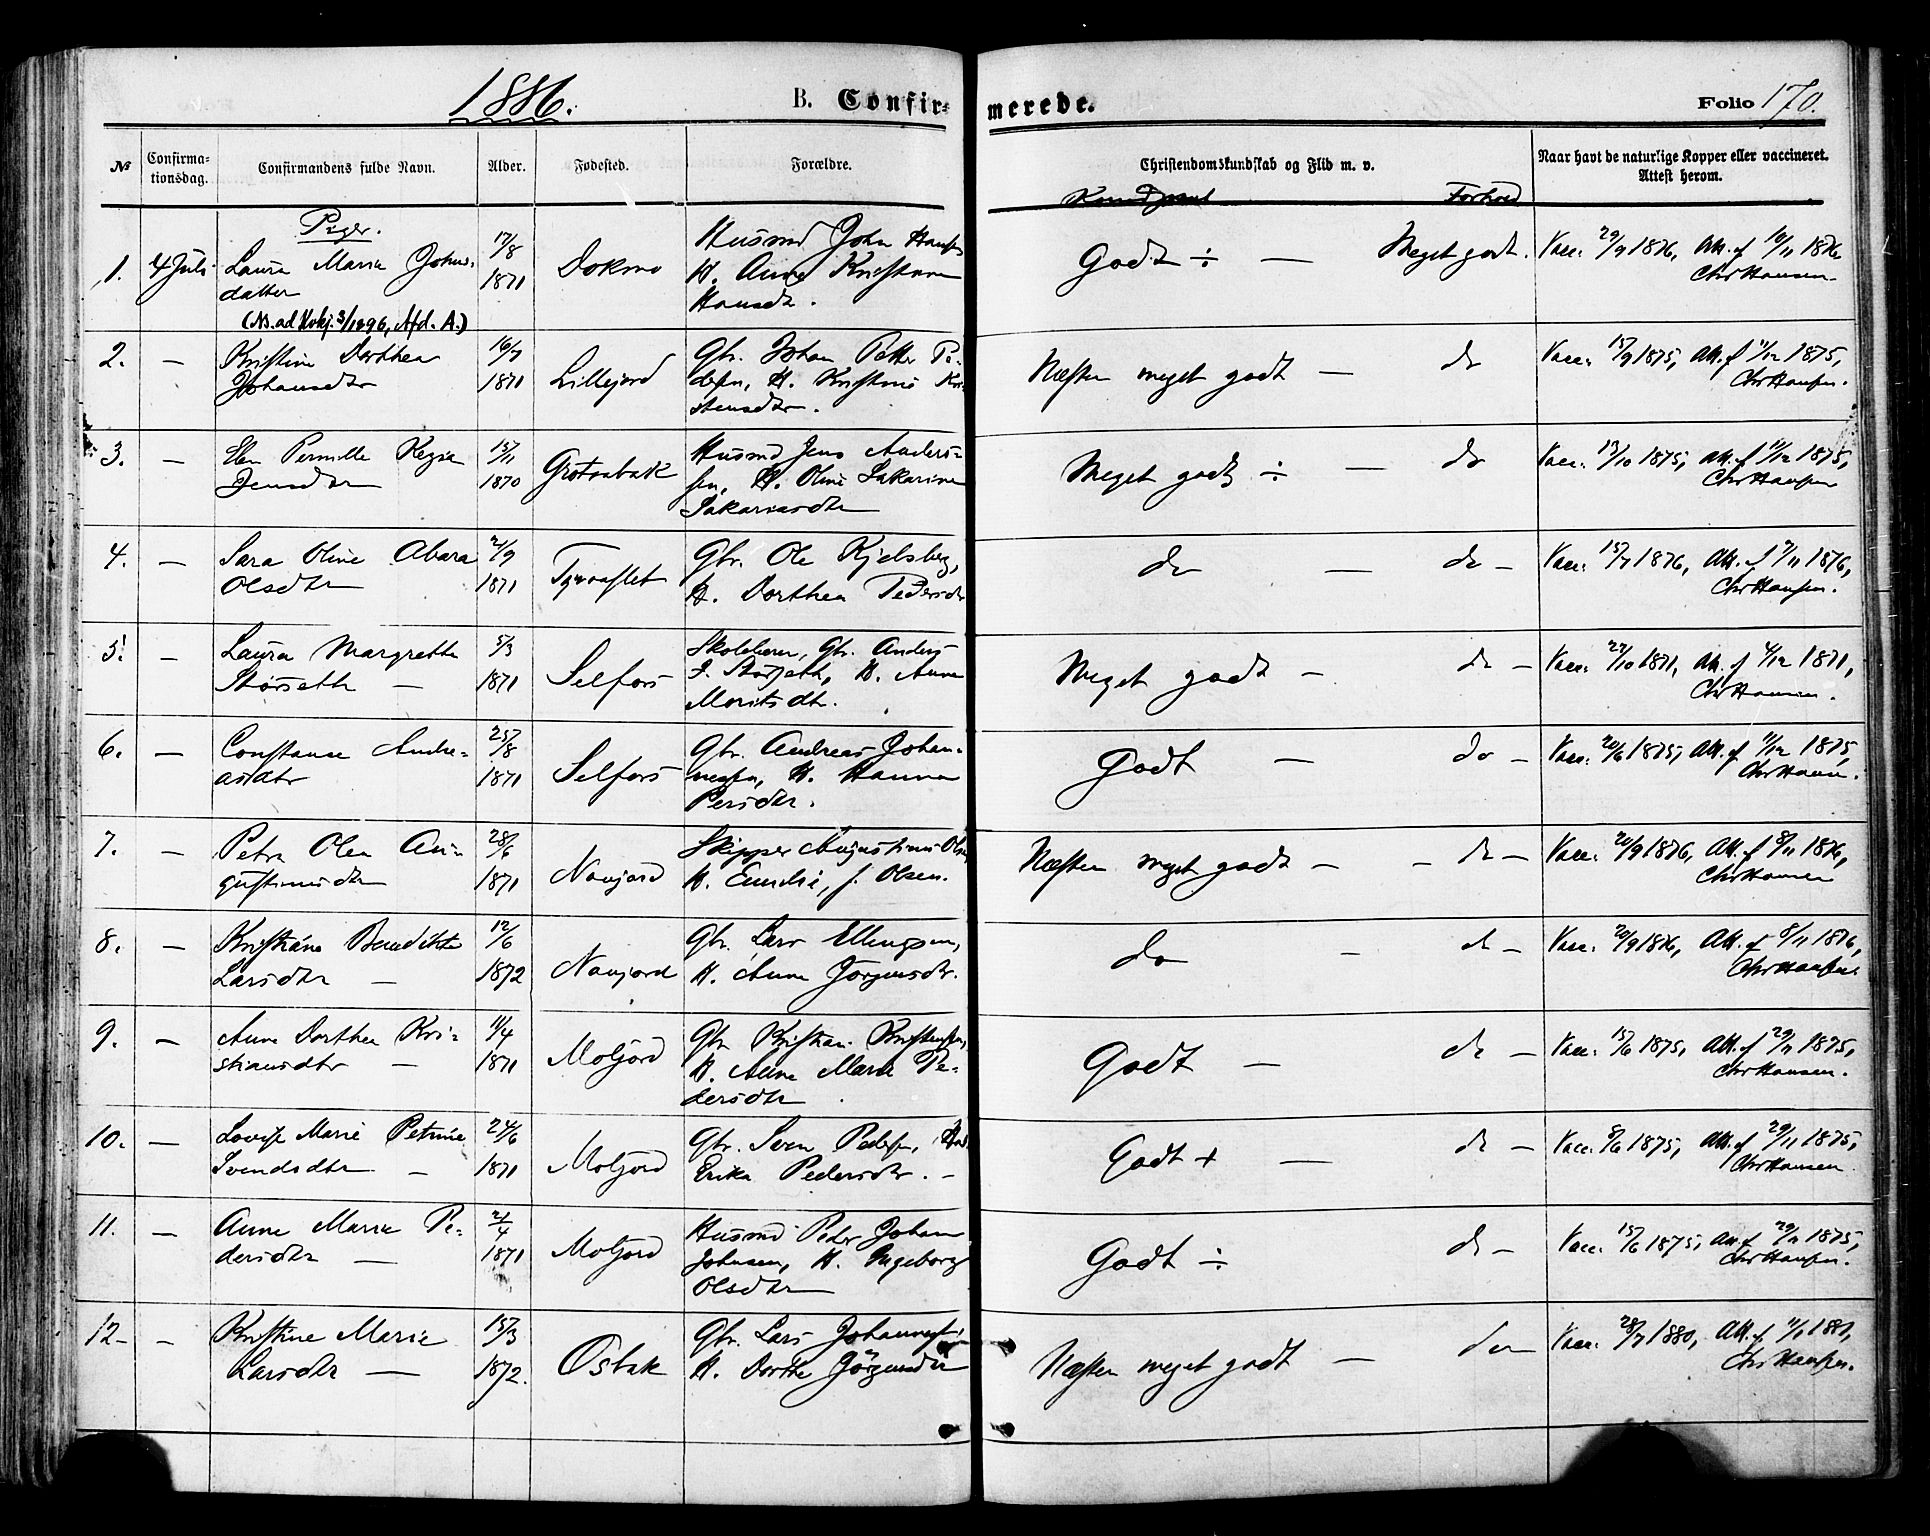 1886.
B. Confir-
merede.
Folio 170.
No
Confirma-
tionsdag.
Confirmandens fulde Navn.
Alder.
Fødested.
Forældre.
Christendomskundskab og Flid m. v.
Naar havt de naturlige Kopper eller vaccineret.
Attest herom.
Kundskab
Forhold
Piger.
1.
4 Juli
Laura Maria Johns-
datter
(Ns. ad Hovkj. 3/1896, Afd. A.)
17/8
1871
Dokmo
Husmd John Hansen
H. Anne Kristiane
Hansdtr.
Godt ÷ —
Meget godt.
Vacc. 29/9 1876, Att. f 10/11 1876
Chr Hansen
2.
—
Kristine Dorthea
Johansdtr
16/7
1871
Lillejord
Gbr. Johan Petter Pe-
dersen, H. Kristine Kri-
stensdtr.
Næsten meget godt —
do
Vacc. 15/9 1875, Att. f 11/12 1875,
Chr Hansen.
3.
—
Elen Pernille Kezia
Jensdtr
15/11
1870
Grotnabak
Husmd Jens Anders-
sen, H. Oline Sakarine
Sakariasdtr
Meget godt ÷ —
do
Vacc. 13/10 1875, Att. f 11/12 1875,
Chr Hansen
4.
—
Sara Oline Abara
Olsdtr
21/9
1871
Gbr. Ole Kjelsberg,
H. Dorthea Pedersdtr
do —
do —
Vacc. 15/7 1876, Att. f 7/11 1876,
Chr Hansen.
5.
—
Laura Margrethe
Størseth —
5/3
1871
Selfors
Skolelærer, Gbr. Anders
J. Størseth, H. Anne
Moritsdtr.
Meget godt —
do —
Vacc. 27/10 1871, Att. f 4/12 1871,
Chr Hansen.
6.
—
Constanse Andre-
asdtr
25/8
1871
Selfors
Gbr. Andreas Johan-
nessen, H. Hanna
Persdtr.
Godt —
do —
Vacc. 20/6 1875, Att. f 11/12 1875,
Chr Hansen.
7.
—
Petra Olea Au-
gustinusdtr
28/6
1871
Navjord
Skipper Augustinus Olsen
H. Emilie, f. Olsen.
Næsten meget godt —
— do —
Vacc. 20/9 1876, Att. f 8/11 1876,
Chr Hansen
8.
—
Kristiane Bendikte
Larsdtr —
12/6
1872
Navjord
Gbr. Lars Ellingsen,
H. Anne Jørgensdtr.
do —
do —
Vacc. 20/9 1876, Att. f 8/11 1876,
Chr Hansen
9.
—
Anne Dorthea Kri-
stiansdtr —
11/4
1871
Moljord
Gbr Kristian Kristensen,
H. Anne Marie Pe-
dersdtr
Godt —
do —
Vacc. 15/6 1875, Att. f 29/11 1875,
Chr Hansen.
10.
—
Lovise Marie Petrine
Svendsdtr —
24/6
1871
Moljord
Gbr. Sven Pedersen, H.
Erika Pedersdtr. —
Godt + —
do —
Vacc. 8/6 1875, Att. f 29/11 1875,
Chr Hansen.
11.
—
Anne Marie Pe-
dersdtr —
2/4
1871
Moljord
Husmd Peder Johan
Johnsen, H. Ingeborg
Olsdtr
Godt ÷
do —
Vacc. 15/6 1875, Att. f 29/11 1875,
Chr Hansen.
12.
—
Kristine Marie
Larsdtr —
15/3
1872.
Osbak
Gbr. Lars Johannessen
H. Dorthe Jörgensdtr
Næsten meget godt —
do
Vacc. 28/7 1880, Att. f. 1881,
Chr Hansen.